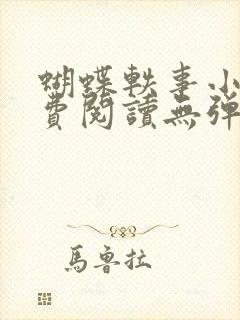 蝴蝶軼事小
費閱讀無彈
馬魯拉